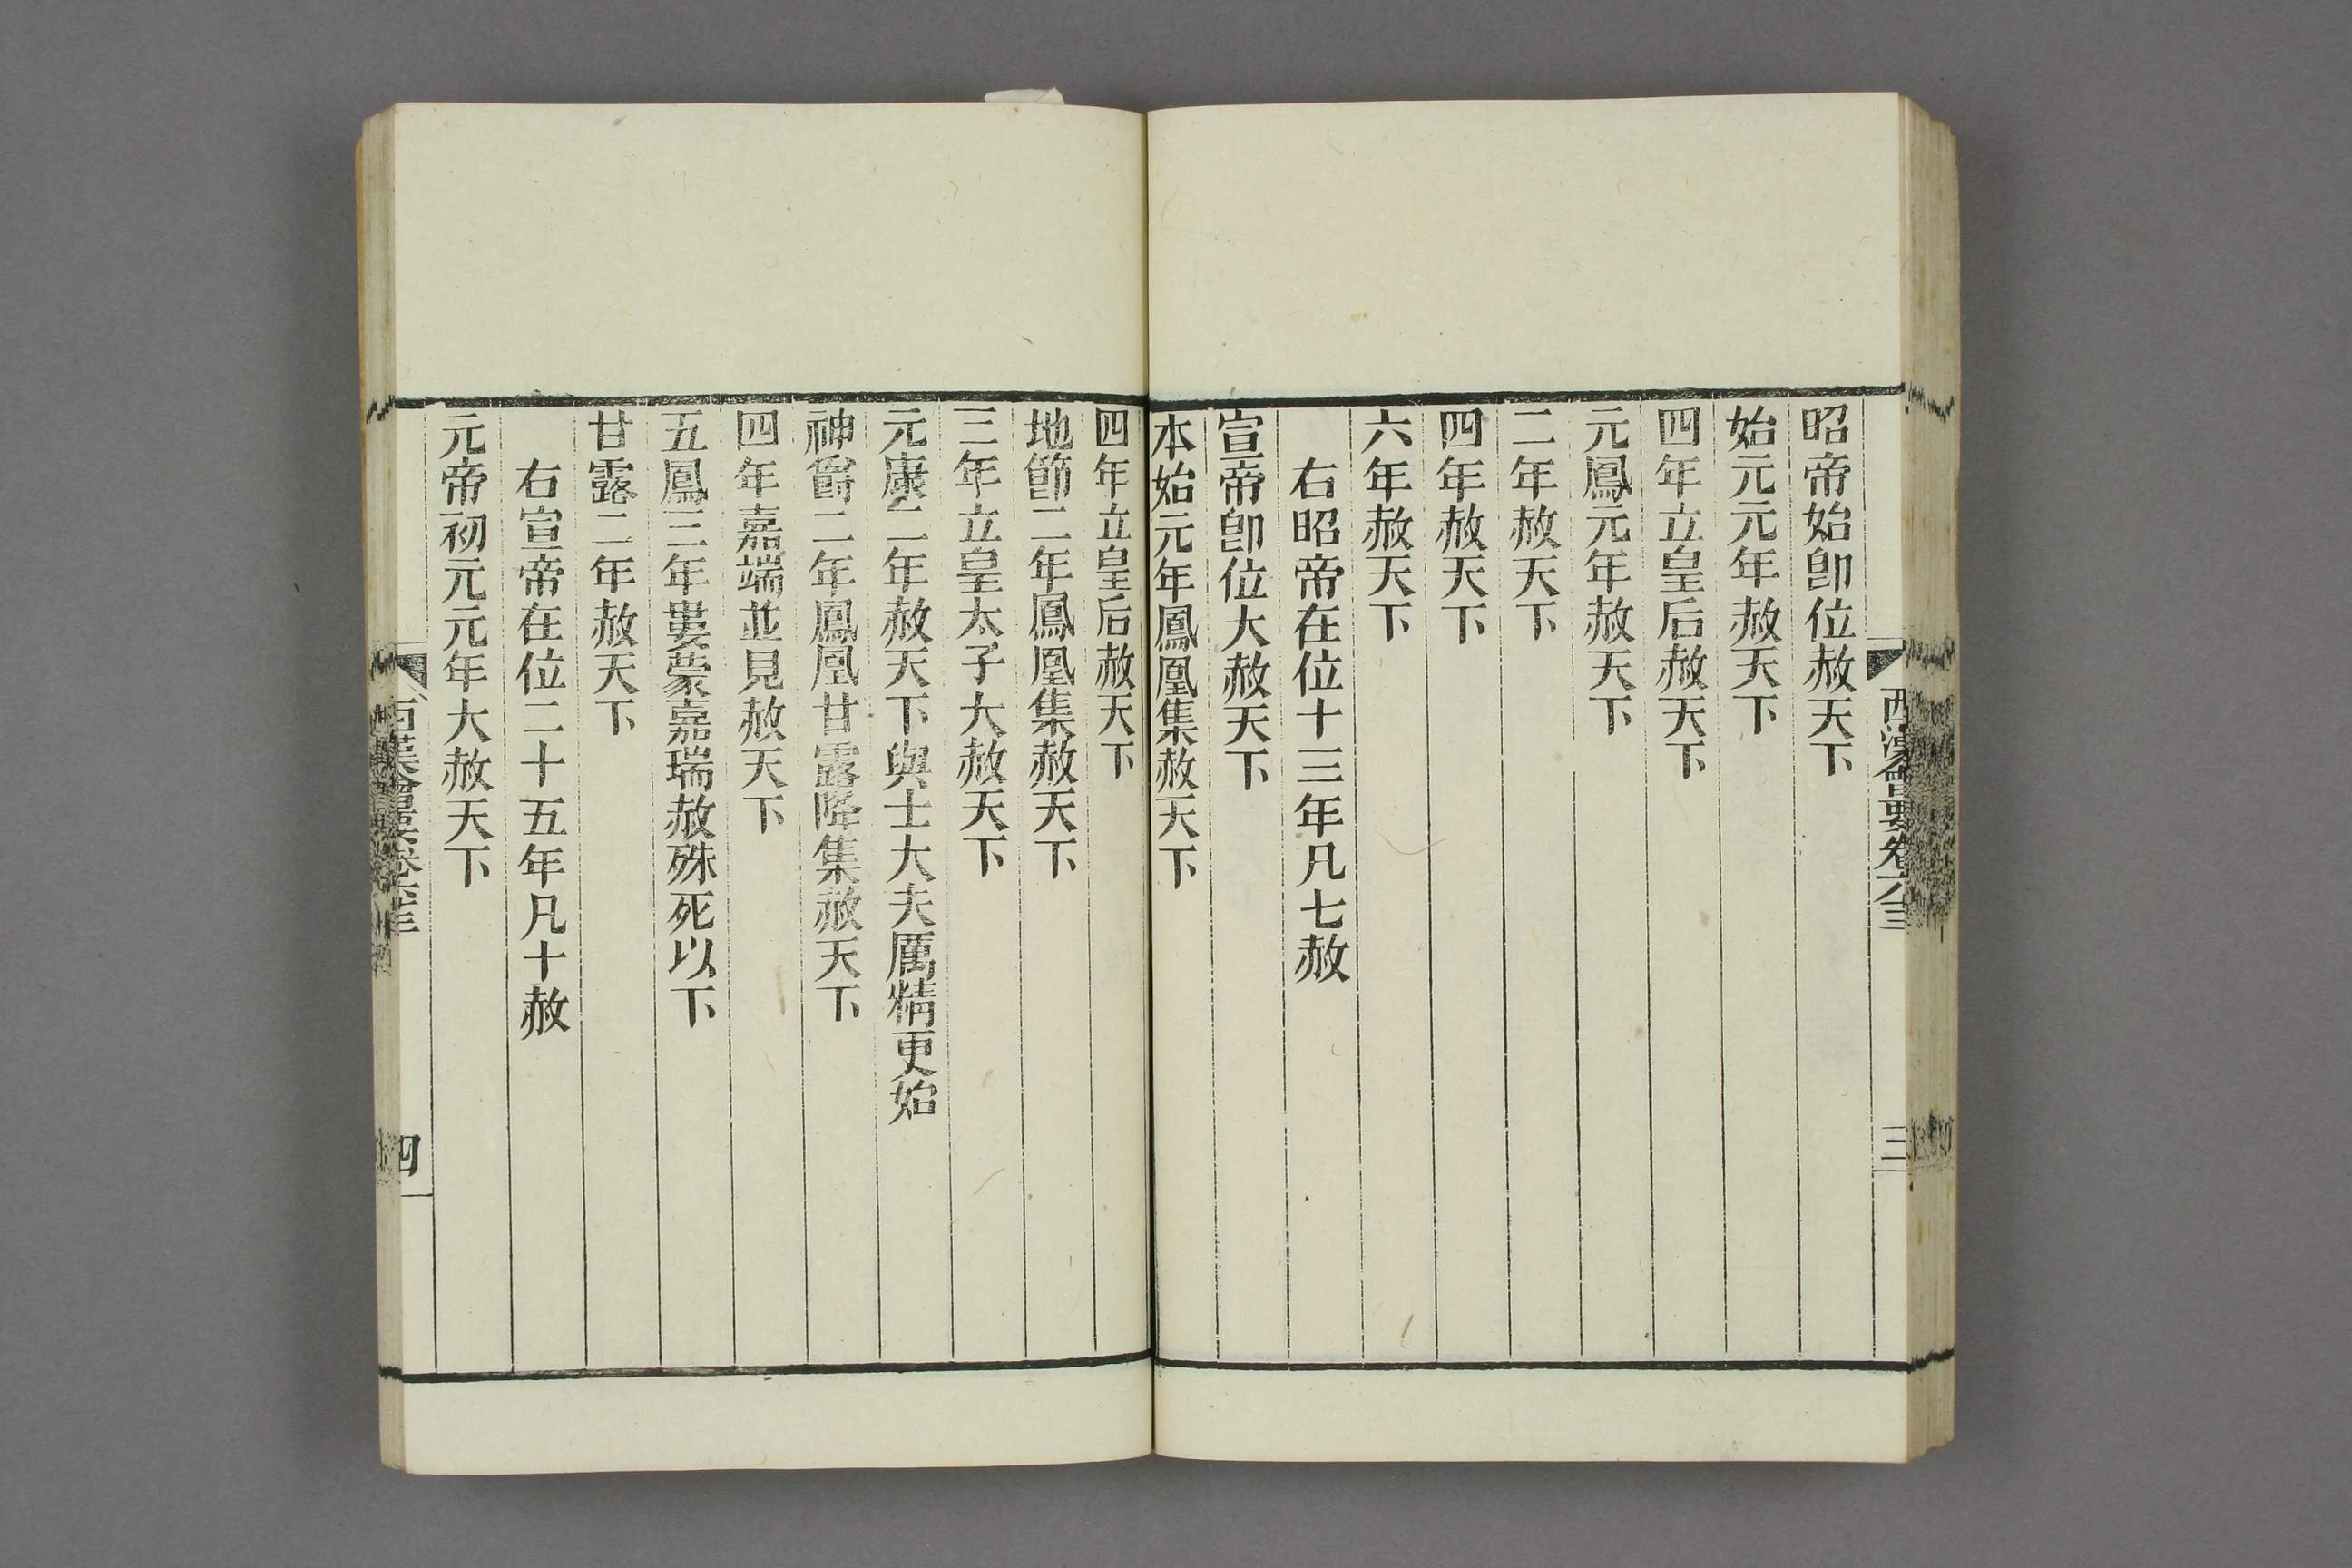 昭帝始卽位赦天下
始元元年赦天下
四年立皇后赦天下
元鳳元年赦天下
二年赦天下
四年赦天下
六年赦天下
右昭帝在位十三年凡七赦
宣帝卽位大赦天下
本始元年鳳凰集赦天下
四年立皇后赦天下
地節二年鳳凰集赦天下
三年立皇太子大赦天下
元康二年赦天下與士大夫厲精更始
神爵二年鳳凰甘露降集赦天下
四年嘉端並見赦天下
五鳳三年婁蒙嘉瑞赦殊死以下
甘露二年赦天下
右宣帝在位二十五年凡十赦
元帝初元元年大赦天下
西漢會要卷六三
三
西漢會要卷六三
四